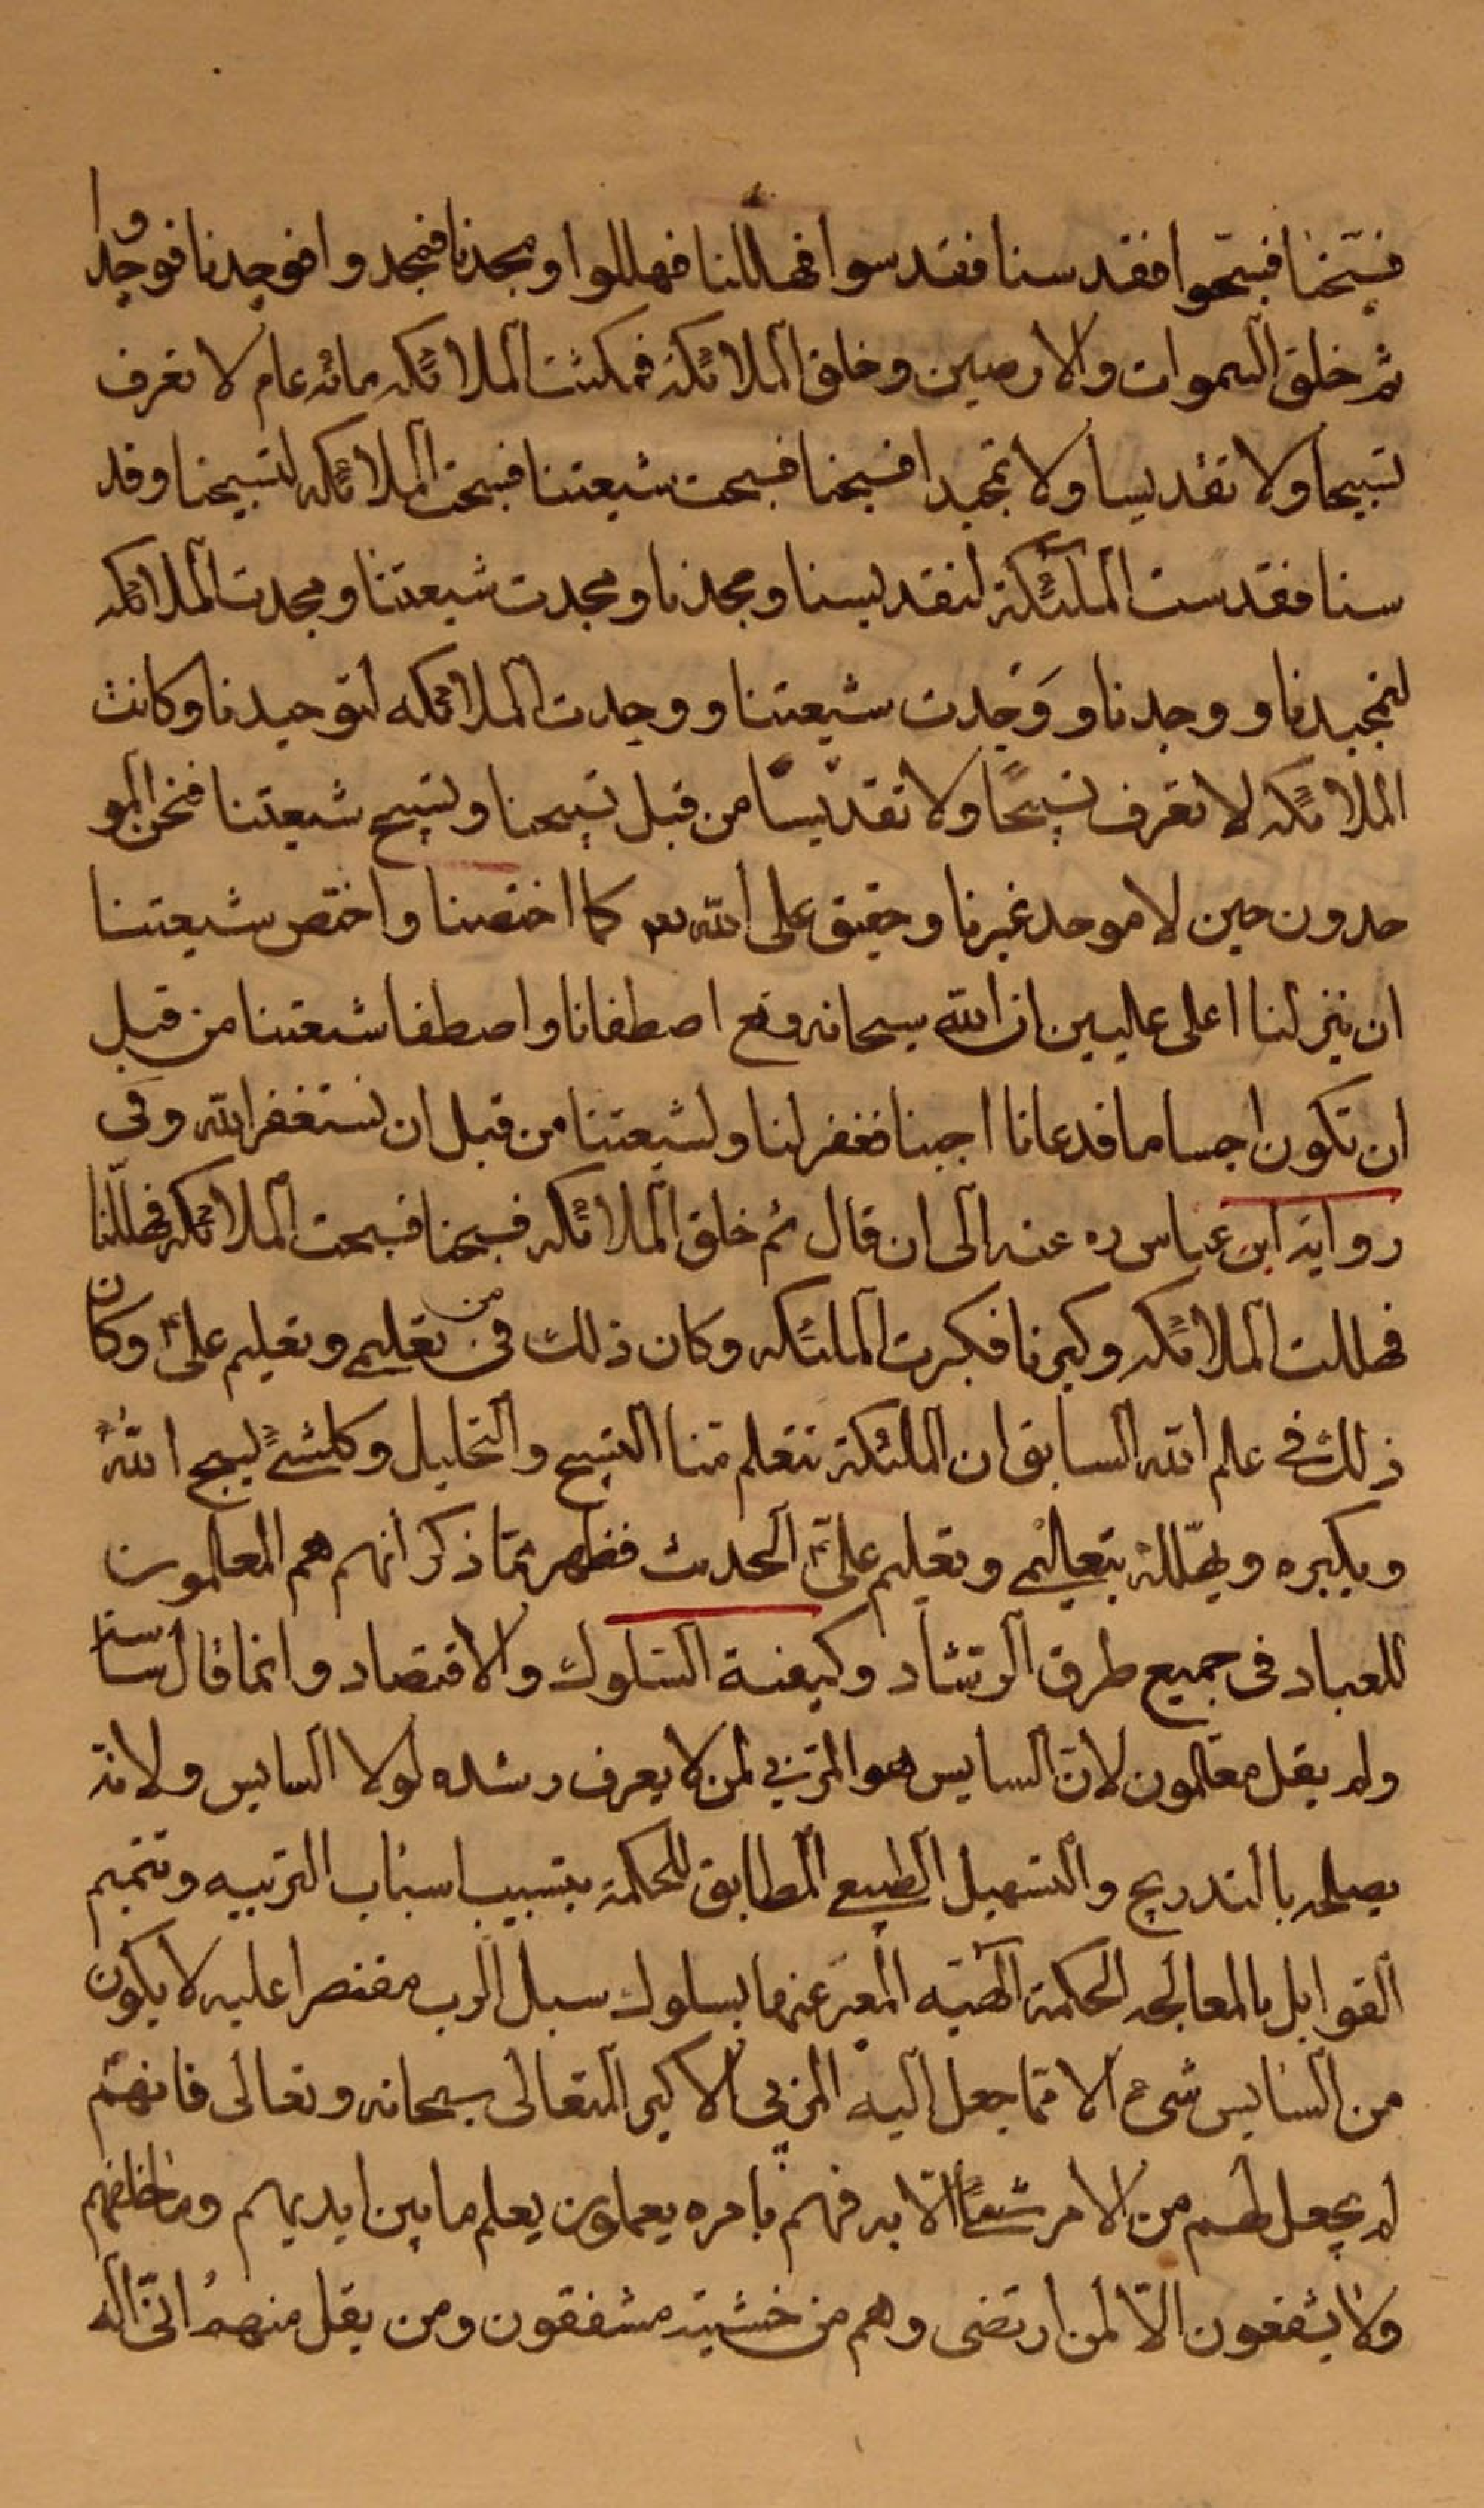 فسبّحنا فسبّحوا فقدسنا فقدسوا فهللنا فهللوا ومجدنا فمجدوا فوحدنا فوحدوا
ثم خلق السموات والارضين وخلق الملائكة فمكثت الملائكه مائه عام لا تعرف
تسبيحا ولا تقديسا ولا تمجيدا فسبحنا فسبحت شيعتنا فسبحت الملائكه لتسبيحنا وقد
سنا فقدست الملئكة لتقديسنا ومجدنا ومجدت شيعتنا ومجدت الملائكه
لتمجيدنا ووحدنا ووَحّدت شيعتنا ووحدت الملائكه لتوحيدنا وكانت
الملائكه لا تعرف تسبيحًا ولا تقديسًا من قبل تسبيحنا وتسبيح شيعتنا فنحن المو
حدون حين لا موحد غيرنا وحقيق على الله تع كما اختصنا واختص شيعتنا
ان ينزلنا اعلى عليين ان الله سبحانه وتع اصطفانا واصطفا شيعتنا من قبل
ان نكون اجساما فدعانا اجبنا فغفر لنا ولشيعتنا من قبل ان نستغفر الله وفى
رواية ابن عباس ره عنه الى ان قال ثم خلق الملائكه فسبحنا فسبحت الملائكه فهلّلنا
فهللت الملائكه وكبرنا فكبرت الملئكه وكان ذلك من تعليمى وتعليم علىّ وكان
ذلك فى علم الله السابق ان الملئكة تتعلم منا التسبيح والتهليل وكلشئ يسبح الله
ويكبره ويهلّله بتعليمى وتعليم علىّ الحديث فظهر ممّا ذكر انهم هم المعلمون
للعباد فى جميع طرق الرشاد وكيفية السّلوك والاقتصاد وانما قال ساسة
ولم يقل معلّمون لانّ السايس هو المربّى لمن لا يعرف رشده لولا السايس ولانه
يصلحه بالتدريج والتسهيل الطبيعى المطابق للحكمة بتسبيب اسباب التربيه وتتميم
القوابل بالمعالجه الحكمة الٓهيّه المعبّر عنها بسلوك سبل الرب مقتصرا عليه لا يكون
من السّايس شىء الا ممّا جعل اليه المربى الاكبر المتعالى سبحانه وتعالى فانهم
لم يجعل لهم من الامر شيئًا الّا به فهم بامره يعملون يعلم ما بين ايديهم وما خلفهم
ولا يشفعون الّا لمن ارتضى وهم من خشيته مشفقون ومن يقل منهم انّى اله